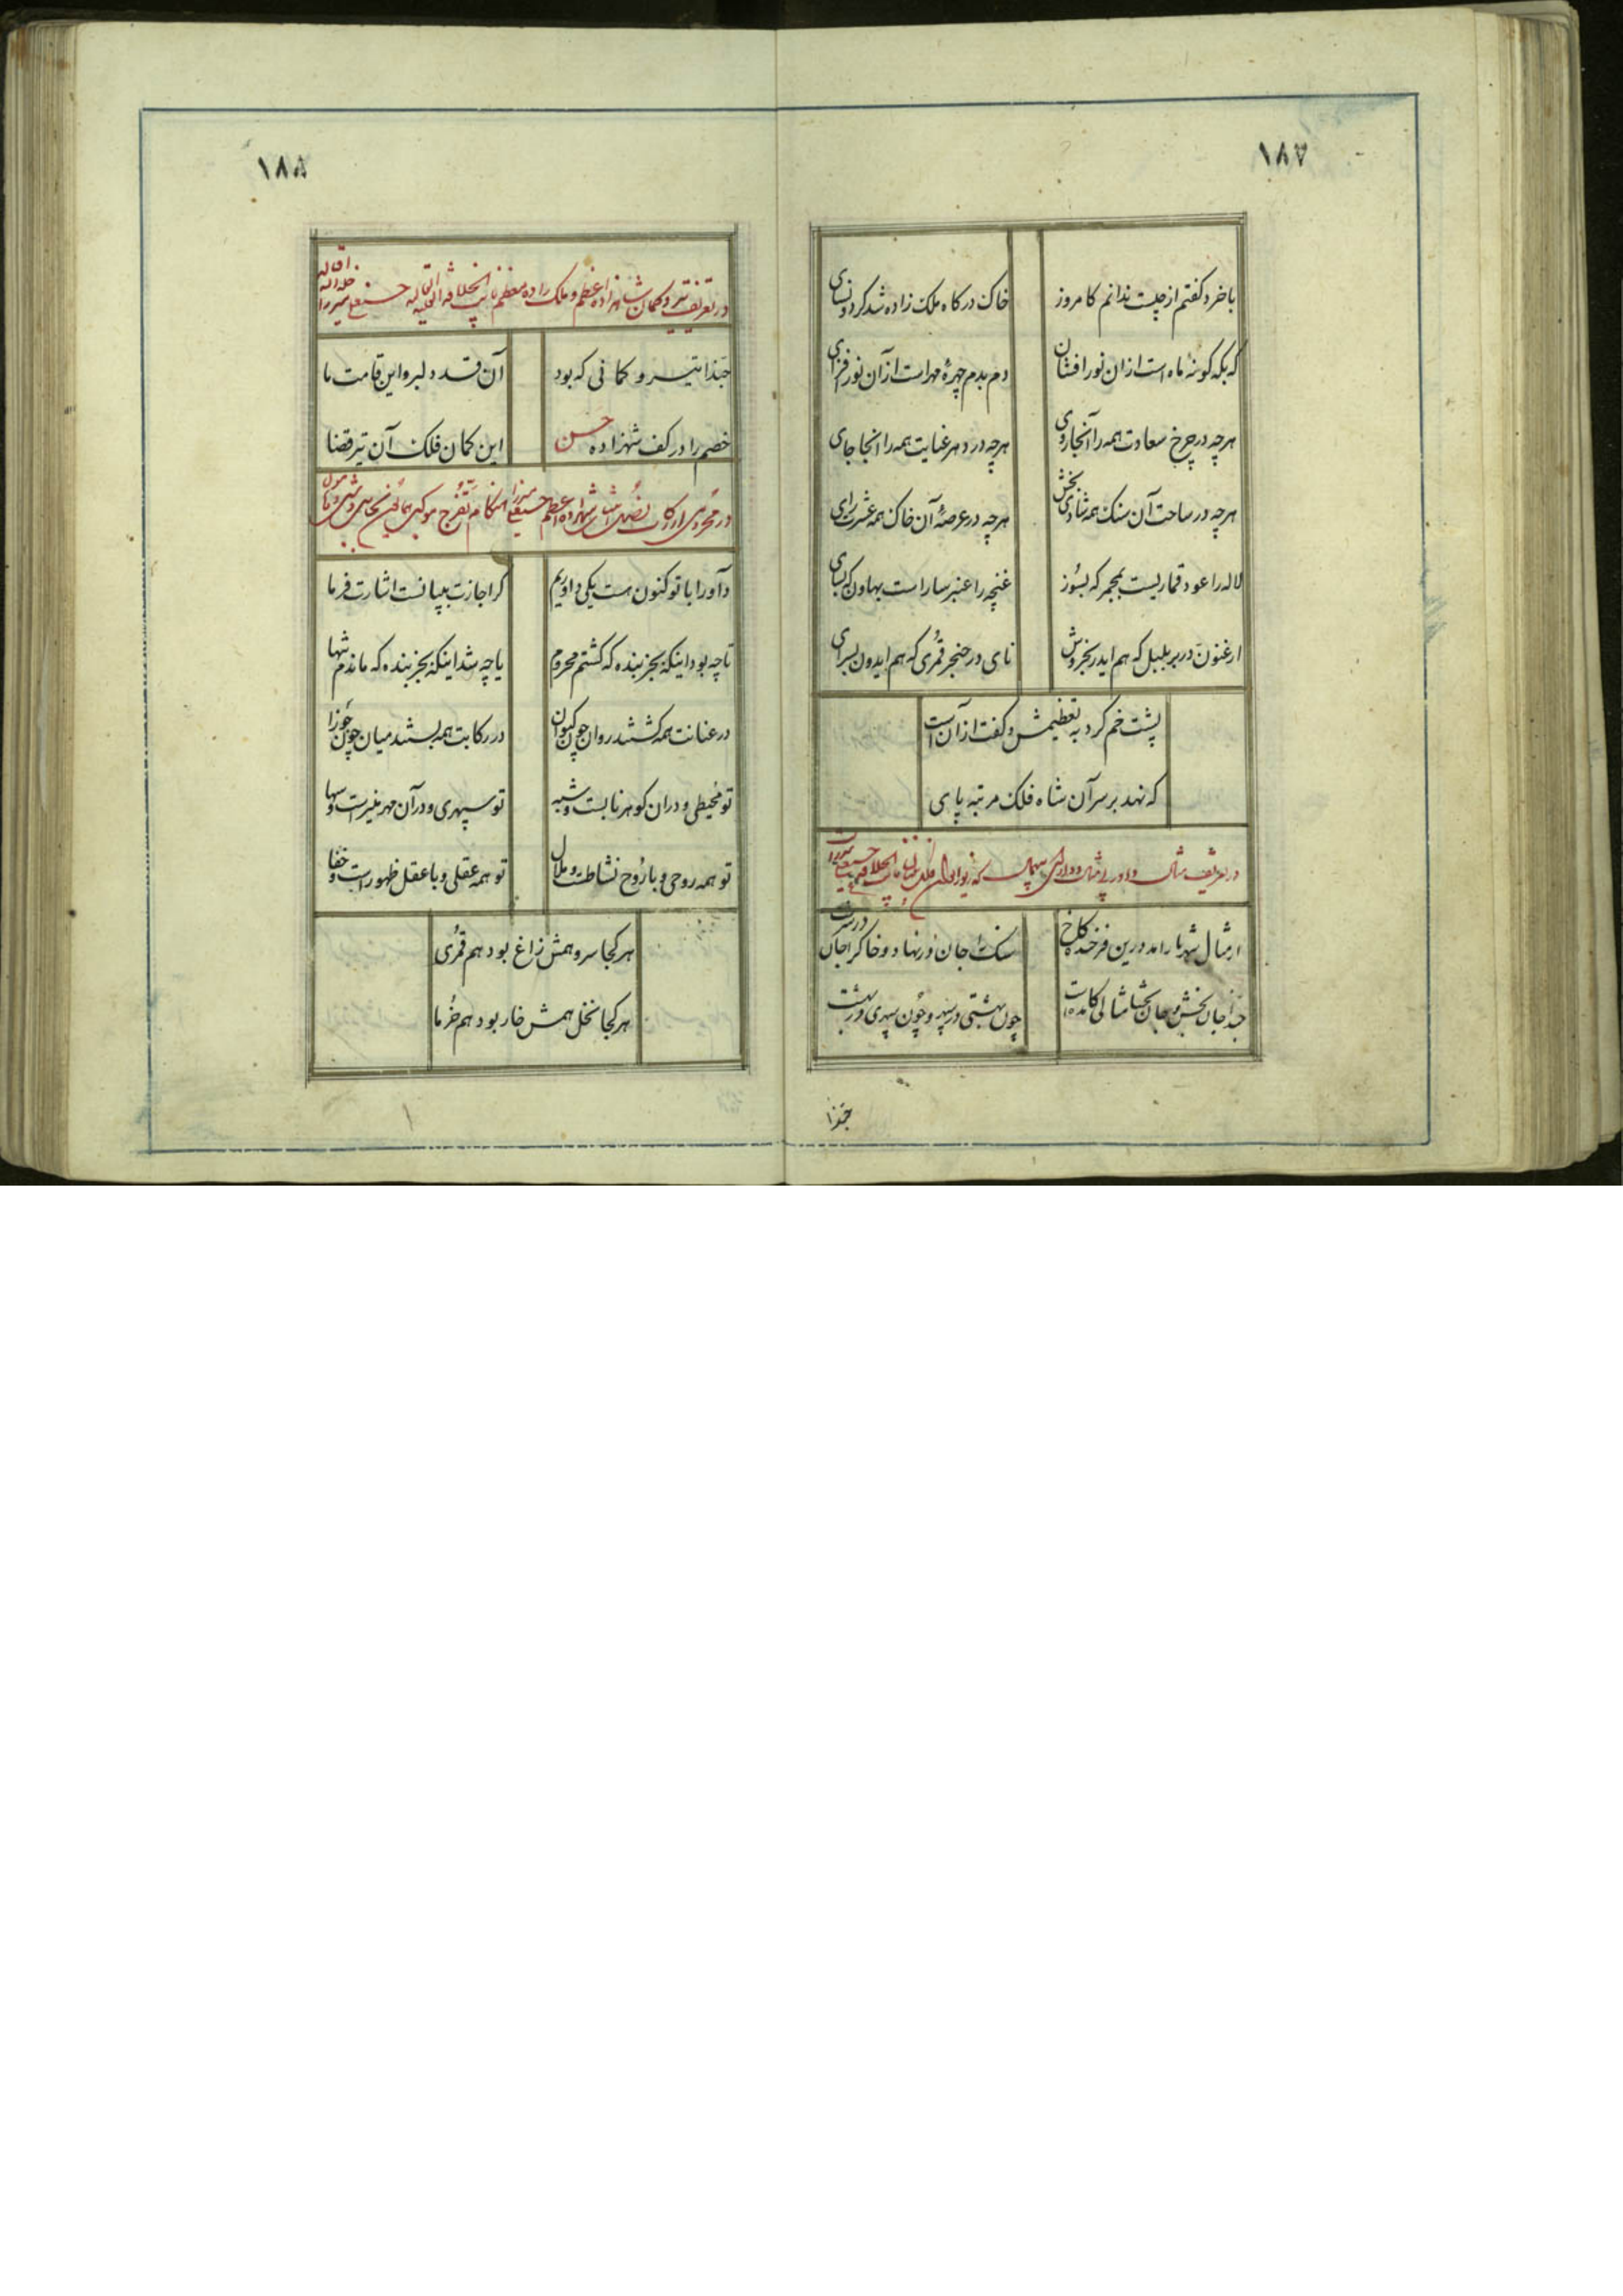 ۱۸۷
با خرد کفتم از چیست ندانم کامروز
خاک درکاه ملک زاده شد کردون سای
که بکه کونهٔ ماه است ازان نور افشان
دم بدم چهرهٔ مهر است از آن نور فزای
هرچه در چرخ سعادت همه را آنجا روی
هرچه در دهر عنایت همه را انجا جای
هرچه در ساحت آن سنک همه شادی بخش
هرچه در عرصهٔ آن خاک همه عشرت زای
لاله را عود قماریست بمجمر که بسوز
غنچه را عنبر سارا است بهاون که بسای
ارغنون در بر بلبل که هم ایدر بخروش
نای در حنجر قمری که هم ایدون بسرای
پشت خم کرد به تعظیمش و کفت از آن است
که نهد بر سر آن شاه فلک مرتبه پای
در تعریف مثال
از مثال شهریار امد درین فرخنده کاخ
سنک را جان در نهاد و خاک را جان در سرشت
حبذا جان بخش و جان بخشا مثالی کامده است
چون بهشتی در سپهر و چون سپهری در بهشت
حبذا
۱۸۸
در تعریف تیر و کمان شاهزاده اعظم و ملک زاده معظم نایب الخلافه حسنعلی میرزا
حبذا تیر و کمانی که بود
آن قد دلبر و این قامت ما
خصم را در کف شهزاده حسن
این کمان فلک آن تیر قضا
در محرومی از رکاب شهزاده اعظم حسنعلی میرزا هنکام تفرج
داورا با تو کنون هست یکی داوریم
کر اجازت بپیانست اشارت فرما
تا چه بود اینکه بجز بنده که کشتم محروم
یا چه شد اینکه بجز بنده که ماندم تنها
در عنانت همه کشتند روان چون کیوان
در رکابت همه بستند میان چون جوزا
تو محیطی و در ان کوهر نابست و شبه
تو سپهری و در آن مهر منیر است و سها
تو همه روحی و با روح نشاطست و ملال
تو همه عقلی و با عقل ظهور است و خفا
هر کجا سرو همش زاغ بود هم قمری
هر کجا نخل همش خار بود هم خرما